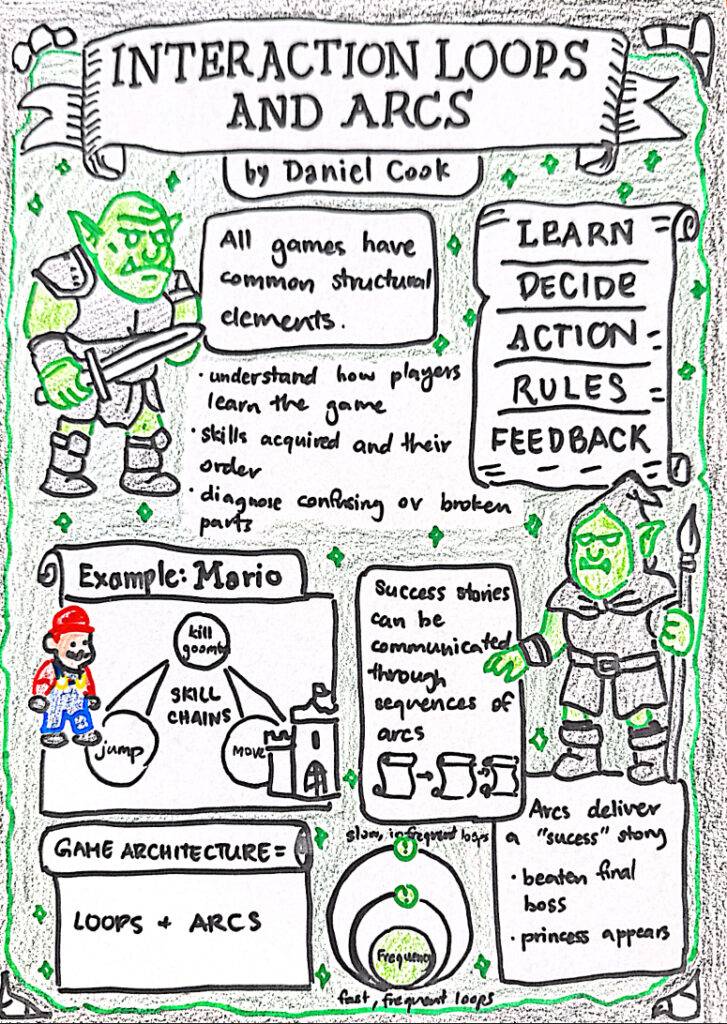 INTERACTION LOOPS
AND ARCS
by Daniel Cook
All games have
common structural
elements.
• understand how players
learn the game
• skills acquired and their
order
• diagnose confusing or broken
parts
LEARN
DECIDE
ACTION
RULES
FEEDBACK
Example: Mario
kill
goomba
SKILL
CHAINS
jump
MOVE
Success stories
can be
communicated
through
sequences of
arcs
GAME ARCHITECTURE =
LOOPS + ARCS
slow, infrequent loops
Frequency
fast, frequent loops
Arcs deliver
a "sucess" story
• beaten final
boss
• princess appears